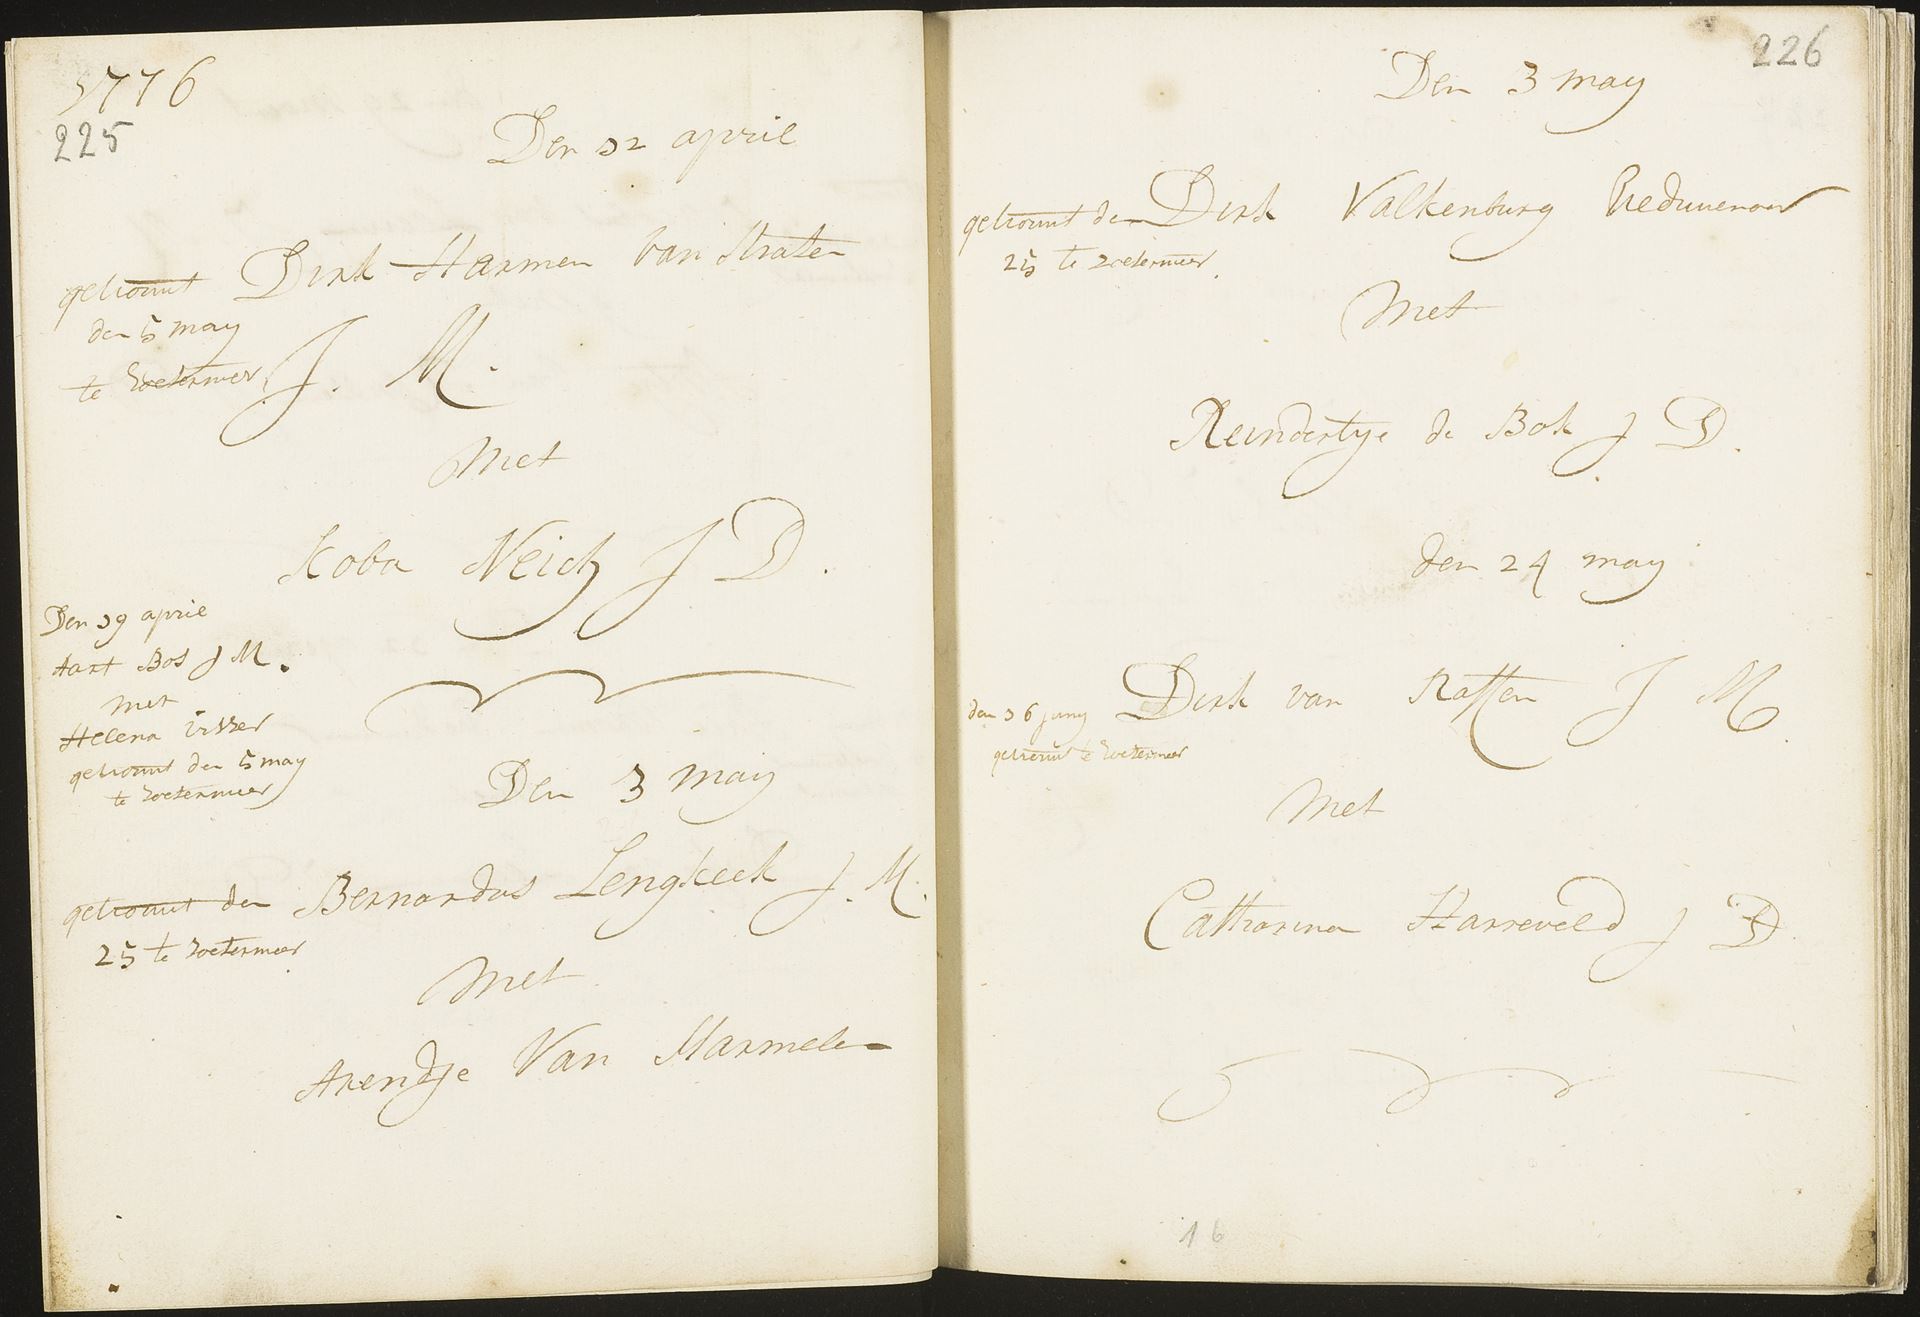 1776
225
Den 12 april
getrouwt Dirk Harmen van Straten
den 5 may
te Zoetermeer J. M.
Met
Koba Neick J D.
Den 19 april
Aart Bos J M.
met
Helena visser
getrouwt den 5 may
te Zoetermeer
Den 3 may
getrouwt den Bernardus Lengkeek J. M.
25 te Zoetermeer
Met
Arendje Van Marmelen
226
Den 3 may
getrouwt den Dirk Valkenburg
25 te Zoetermeer
Met
Reindertje de Bok J D.
den 24 may
Dirk van J M
den 16 juny
getrouwt te Zoetermeer
Met
Catharina Harreveld J D
16